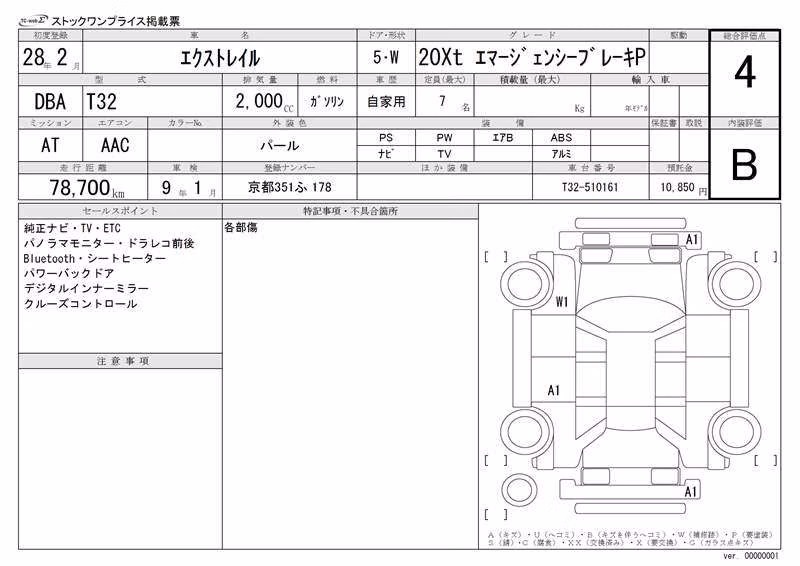 TC-webΣ ストックワンプライス掲載票
初度登録 車名 ドア・形状 グレード 駆動 総合評価点
28年 2月 エクストレイル 5・W 20Xt エマージェンシーブレーキP 4
型式 排気量 燃料 車歴 定員(最大) 積載量(最大) 輸入車
DBA T32 2,000CC ガソリン 自家用 7名 Kg 年モデル
ミッション エアコン カラーNo. 外装色 装備 保証書 取説 内装評価
AT AAC パール PS PW エアB ABS B
ナビ TV アルミ
走行距離 車検 登録ナンバー ほか装備 車台番号 預託金
78,700km 9年 1月 京都351ふ 178 T32-510161 10,850円
セールスポイント 特記事項・不具合箇所
純正ナビ・TV・ETC 各部傷
パノラマモニター・ドラレコ前後
Bluetooth・シートヒーター
パワーバックドア
デジタルインナーミラー
クルーズコントロール
注意事項
A1
[ ] [ ]
W1
A1
[ ] [ ]
A1
[ ]
A(キズ)・U(ヘコミ)・B(キズを伴うヘコミ)・W(補修跡)・P(要塗装)
S(錆)・C(腐食)・XX(交換済み)・X(要交換)・G(ガラス点キズ)
ver. 00000001